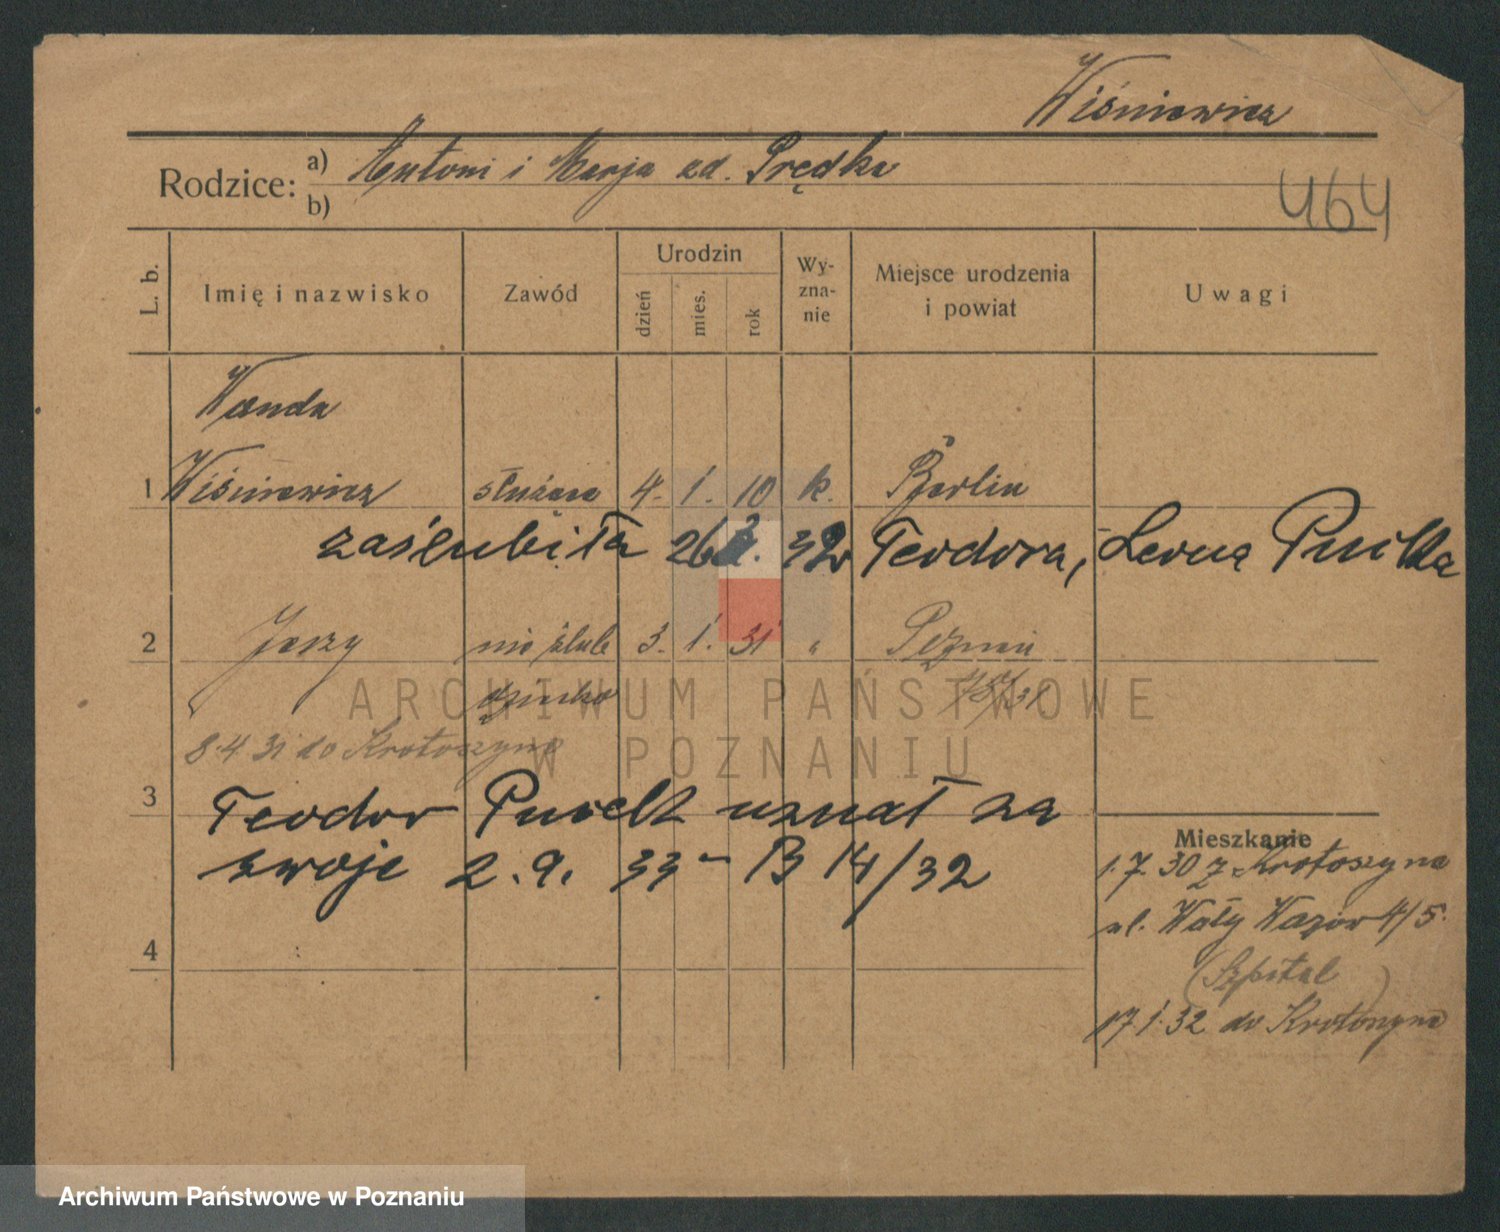 Wiśniewicz
Rodzice: a) Antoni i Marja zd. Prędka
b)
464
L. b.
Imię i nazwisko
Zawód
Urodzin
dzień
mies.
rok
Wy-
zna-
nie
Miejsce urodzenia
i powiat
Uwagi
Wanda
1 Wiśniewicz służąca 4. 1. 10 k. Berlin
zaślubiła 26 32 Teodora, Leona
2 Jerzy nie ślub 3. 1. 31 "
dziecko
8.4.31 do Krotoszyna
3
Teodor uznał za
swoje 2.9. 33 - B 14/32
4
Mieszkanie
1.7.30 z Krotoszyna
ul. Wały Wazów 4/5.
(Szpital)
17 1. 32 do Krotoszyna
ARCHIWUM PAŃSTWOWE
W POZNANIU
Archiwum Państwowe w Poznaniu